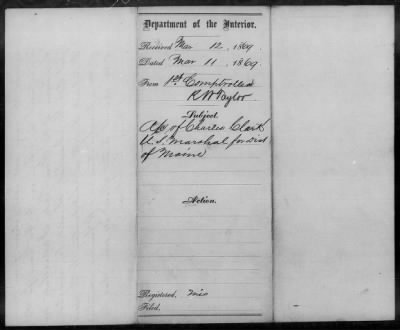 Department of the Interior.
Received Mar 12, 1869.
Dated Mar 11, 1869.
From 1st Comptroller
R W Taylor
Subject.
A/c of Charles Clark
U.S. Marshal for Dist
of Maine
Action.
Registered,
Filed,